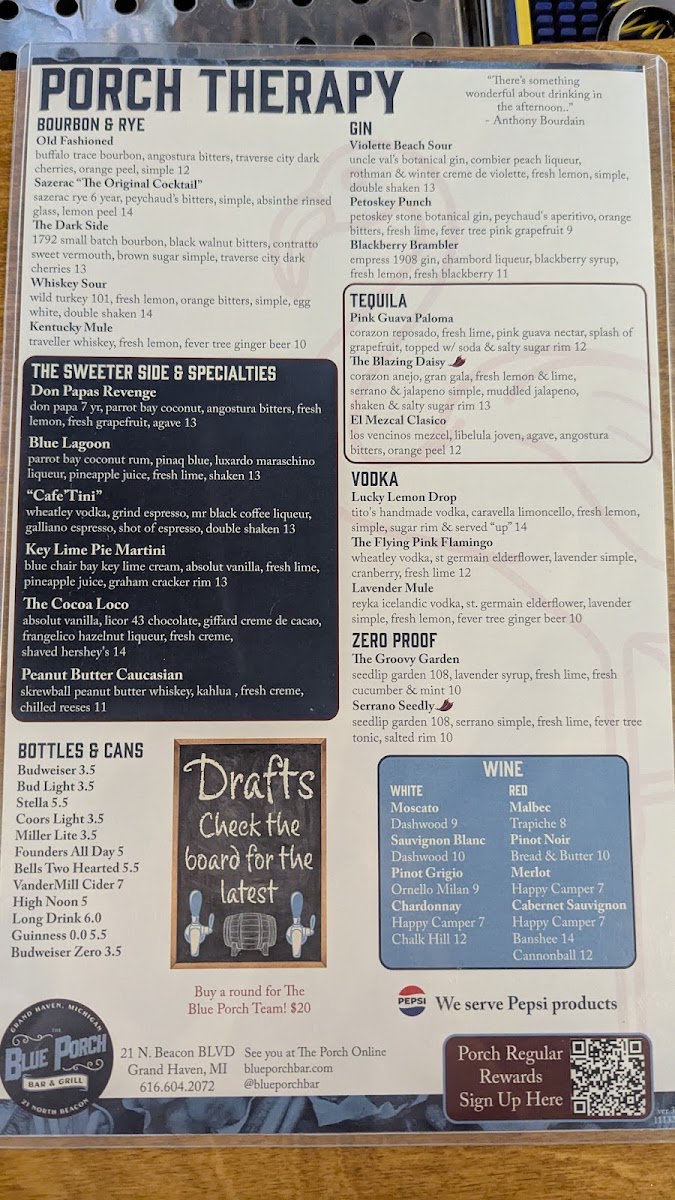 PORCH THERAPY
"There's something
wonderful about drinking in
the afternoon.."
- Anthony Bourdain
BOURBON & RYE
Old Fashioned
buffalo trace bourbon, angostura bitters, traverse city dark
cherries, orange peel, simple 12
Sazerac "The Original Cocktail"
sazerac rye 6 year, peychaud's bitters, simple, absinthe rinsed
glass, lemon peel 14
The Dark Side
1792 small batch bourbon, black walnut bitters, contratto
sweet vermouth, brown sugar simple, traverse city dark
cherries 13
Whiskey Sour
wild turkey 101, fresh lemon, orange bitters, simple, egg
white, double shaken 14
Kentucky Mule
traveller whiskey, fresh lemon, fever tree ginger beer 10
THE SWEETER SIDE & SPECIALTIES
Don Papas Revenge
don papa 7 yr, parrot bay coconut, angostura bitters, fresh
lemon, fresh grapefruit, agave 13
Blue Lagoon
parrot bay coconut rum, pinaq blue, luxardo maraschino
liqueur, pineapple juice, fresh lime, shaken 13
"Cafe'Tini"
wheatley vodka, grind espresso, mr black coffee liqueur,
galliano espresso, shot of espresso, double shaken 13
Key Lime Pie Martini
blue chair bay key lime cream, absolut vanilla, fresh lime,
pineapple juice, graham cracker rim 13
The Cocoa Loco
absolut vanilla, licor 43 chocolate, giffard creme de cacao,
frangelico hazelnut liqueur, fresh creme,
shaved hershey's 14
Peanut Butter Caucasian
skrewball peanut butter whiskey, kahlua , fresh creme,
chilled reeses 11
GIN
Violette Beach Sour
uncle val's botanical gin, combier peach liqueur,
rothman & winter creme de violette, fresh lemon, simple,
double shaken 13
Petoskey Punch
petoskey stone botanical gin, peychaud's aperitivo, orange
bitters, fresh lime, fever tree pink grapefruit 9
Blackberry Brambler
empress 1908 gin, chambord liqueur, blackberry syrup,
fresh lemon, fresh blackberry 11
TEQUILA
Pink Guava Paloma
corazon reposado, fresh lime, pink guava nectar, splash of
grapefruit, topped w/ soda & salty sugar rim 12
The Blazing Daisy
corazon anejo, gran gala, fresh lemon & lime,
serrano & jalapeno simple, muddled jalapeno,
shaken & salty sugar rim 13
El Mezcal Clasico
los vencinos mezcel, libelula joven, agave, angostura
bitters, orange peel 12
VODKA
Lucky Lemon Drop
tito's handmade vodka, caravella limoncello, fresh lemon,
simple, sugar rim & served "up" 14
The Flying Pink Flamingo
wheatley vodka, st germain elderflower, lavender simple,
cranberry, fresh lime 12
Lavender Mule
reyka icelandic vodka, st. germain elderflower, lavender
simple, fresh lemon, fever tree ginger beer 10
ZERO PROOF
The Groovy Garden
seedlip garden 108, lavender syrup, fresh lime, fresh
cucumber & mint 10
Serrano Seedly
seedlip garden 108, serrano simple, fresh lime, fever tree
tonic, salted rim 10
BOTTLES & CANS
Budweiser 3.5
Bud Light 3.5
Stella 5.5
Coors Light 3.5
Miller Lite 3.5
Founders All Day 5
Bells Two Hearted 5.5
VanderMill Cider 7
High Noon 5
Long Drink 6.0
Guinness 0.0 5.5
Budweiser Zero 3.5
Drafts
Check the
board for the
latest
Buy a round for The
Blue Porch Team! $20
WINE
WHITE
Moscato
Dashwood 9
Sauvignon Blanc
Dashwood 10
Pinot Grigio
Ornello Milan 9
Chardonnay
Happy Camper 7
Chalk Hill 12
RED
Malbec
Trapiche 8
Pinot Noir
Bread & Butter 10
Merlot
Happy Camper 7
Cabernet Sauvignon
Happy Camper 7
Banshee 14
Cannonball 12
PEPSI
We serve Pepsi products
GRAND HAVEN, MICHIGAN
THE
BLUE PORCH
BAR & GRILL
21 NORTH BEACON
21 N. Beacon BLVD
Grand Haven, MI
616.604.2072
See you at The Porch Online
blueporchbar.com
@blueporchbar
Porch Regular
Rewards
Sign Up Here